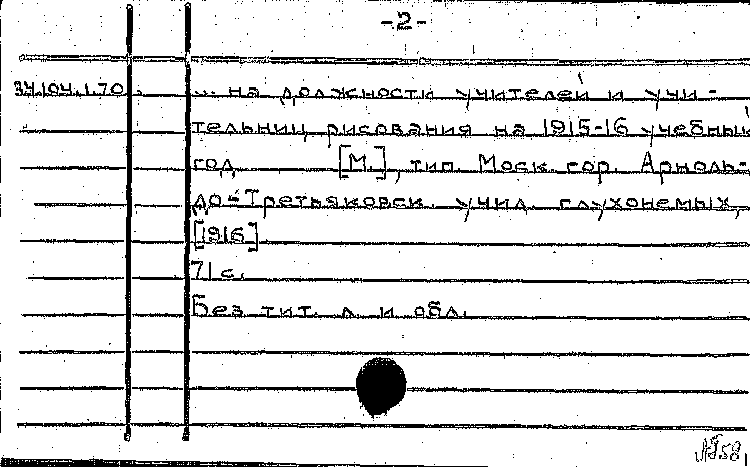 -2-
34.104.1.70
... на должности учителей и учи-
тельниц рисования на 1915-16 учебный
год [М.], тип. Моск. гор. Арноль-
до-Третьяковск. училищ. глухонемых,
[1916]
71 с.
Без тит. л. и обл.